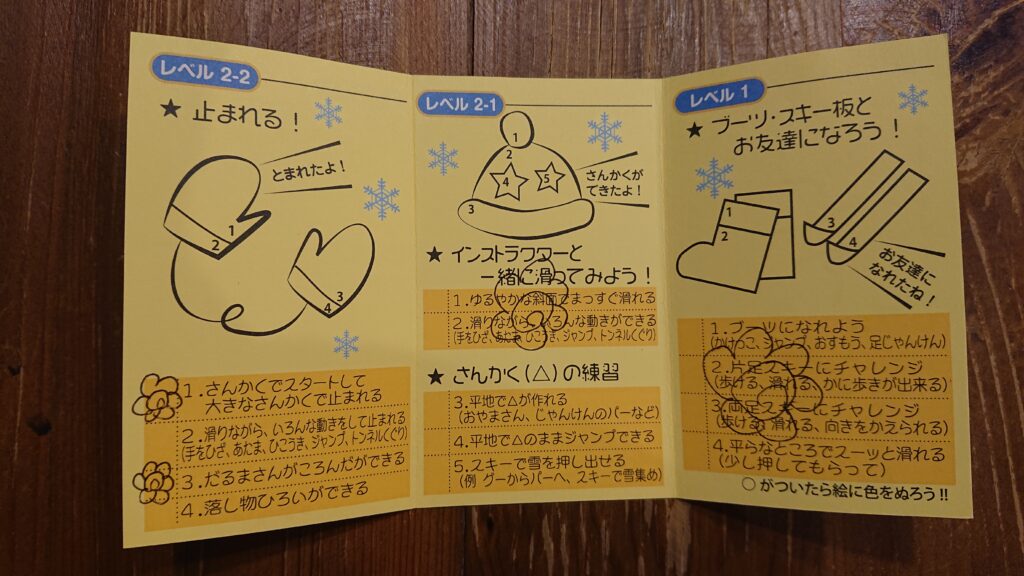 レベル 2-2
★ 止まれる！
とまれたよ！
1
2
3
4
1.さんかくでスタートして
大きなさんかくで止まれる
2.滑りながら、いろんな動きをして止まれる
(手をひざ、あたま、ひこうき、ジャンプ、トンネルくぐり)
3.だるまさんがころんだができる
4.落し物ひろいができる
レベル 2-1
1
2
4
5
3
さんかくが
できたよ！
★ インストラクターと
一緒に滑ってみよう！
1.ゆるやかな斜面でまっすぐ滑れる
2.滑りながら、いろんな動きができる
(手をひざ、あたま、ひこうき、ジャンプ、トンネルくぐり)
★ さんかく(△)の練習
3.平地で△が作れる
(おやまさん、じゃんけんのパーなど)
4.平地で△のままジャンプできる
5.スキーで雪を押し出せる
(例 グーからパーへ、スキーで雪集め)
レベル 1
★ ブーツ・スキー板と
お友達になろう！
1
2
3
4
お友達に
なれたね！
1.ブーツになれよう
(かけっこ、ジャンプ、おすもう、足じゃんけん)
2.片足スキーにチャレンジ
(歩ける、滑れる、かに歩きが出来る)
3.両足スキーにチャレンジ
(歩ける、滑れる、向きをかえられる)
4.平らなところでスーッと滑れる
(少し押してもらって)
○がついたら絵に色をぬろう!!